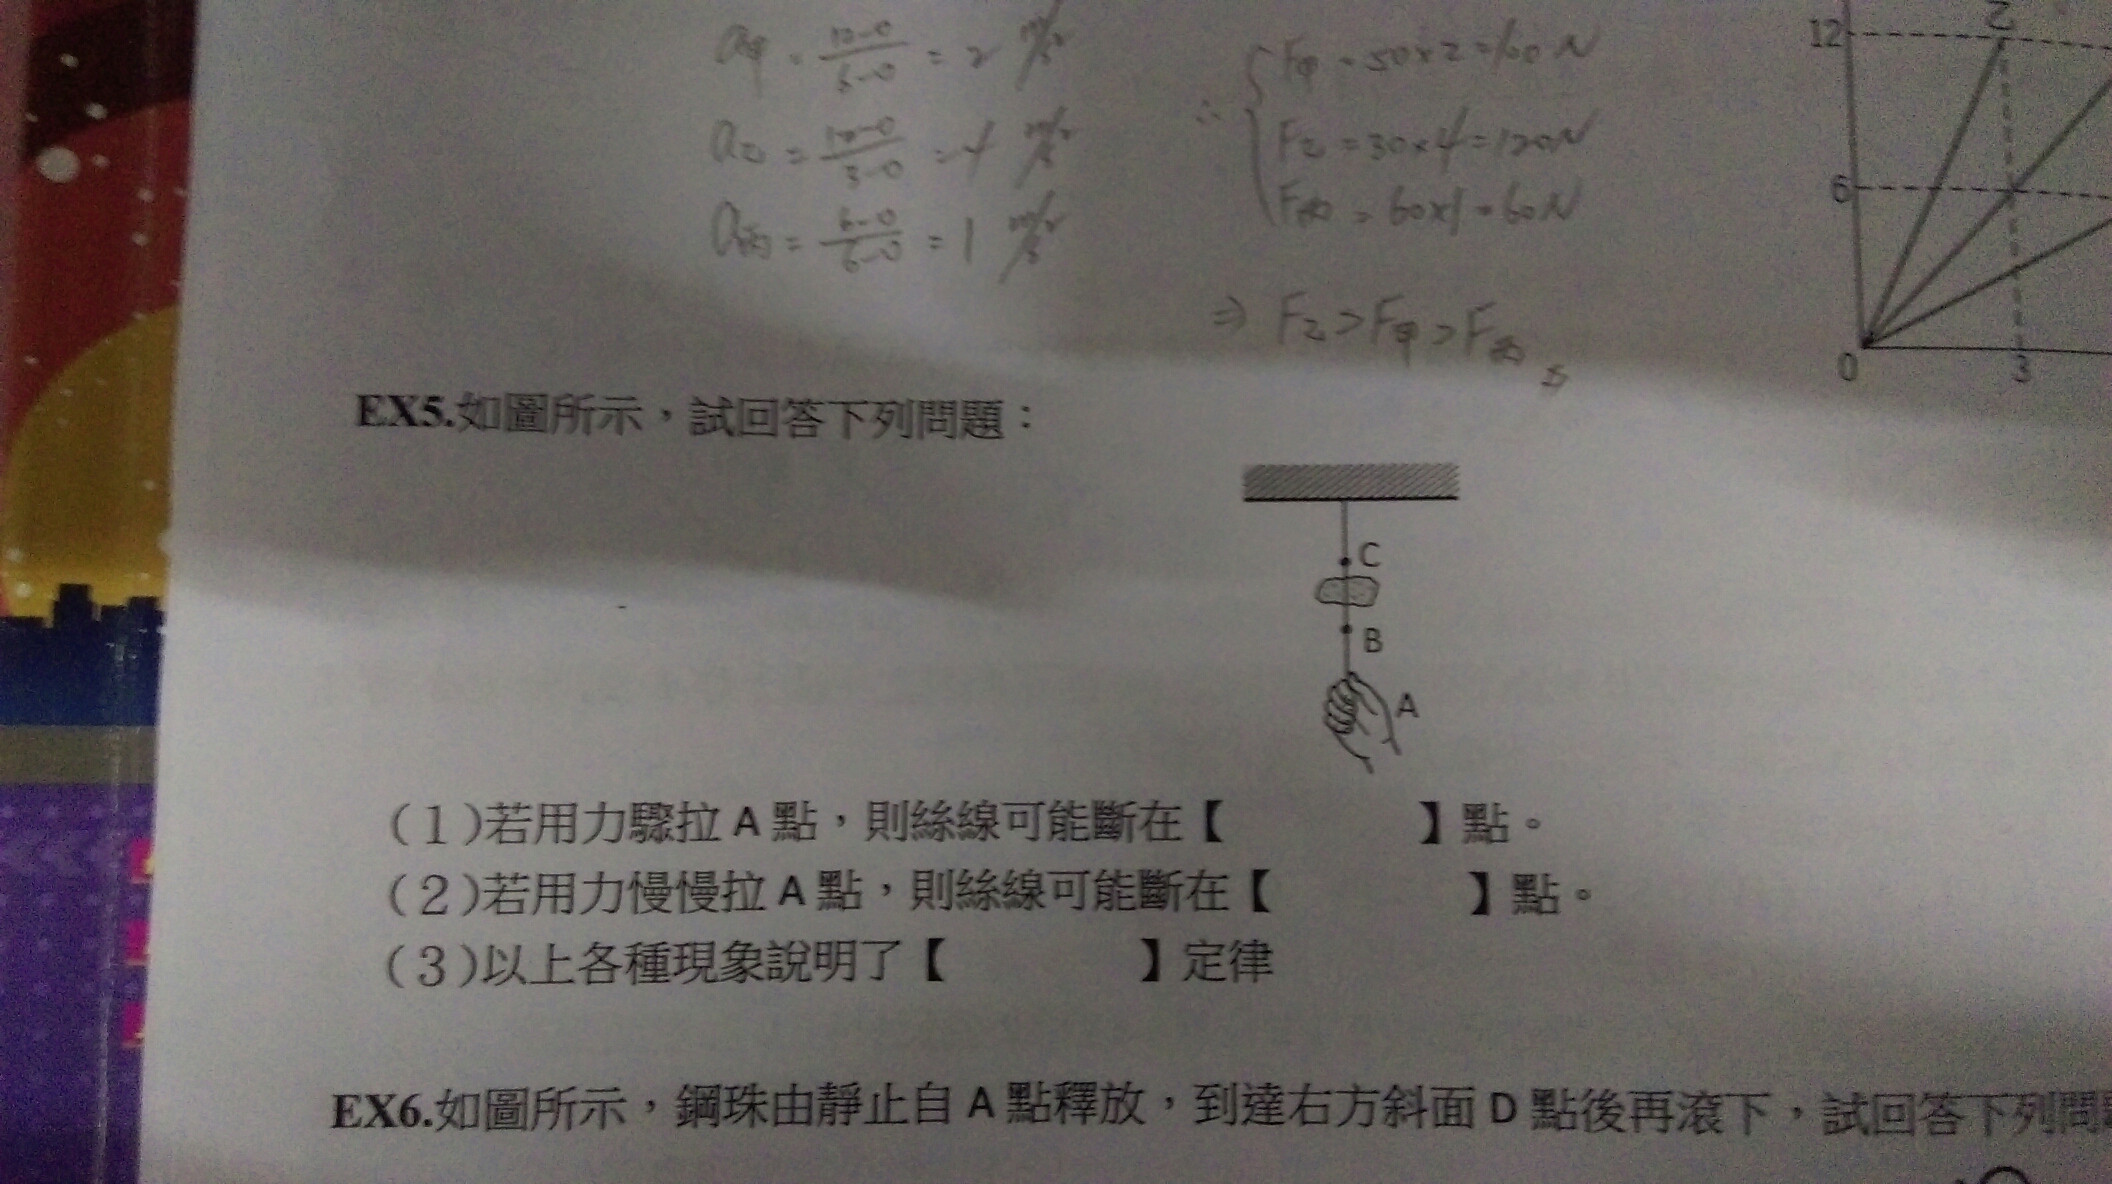 a甲 = 12-0/6-0 = 2 m/s²
a乙 = 12-0/3-0 = 4 m/s²
a丙 = 6-0/6-0 = 1 m/s²
∴ F甲 = 50×2=100N
F乙 = 30×4=120N
F丙 = 60×1=60N
⇒ F乙>F甲>F丙
乙
12
6
0
3
EX5.如圖所示，試回答下列問題：
C
B
A
(1)若用力驟拉 A 點，則絲線可能斷在【 】點。
(2)若用力慢慢拉 A 點，則絲線可能斷在【 】點。
(3)以上各種現象說明了【 】定律
EX6.如圖所示，鋼珠由靜止自 A 點釋放，到達右方斜面 D 點後再滾下，試回答下列問